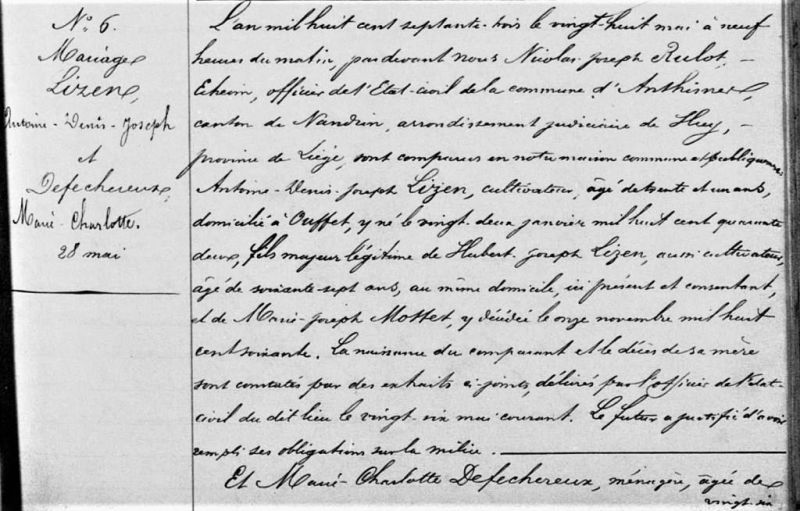 N° 6.
Mariage
Lizen,
Antoine-Denis-Joseph
et
Defechereux,
Marie-Charlotte.
28 mai
L'an mil huit cent septante-trois le vingt-huit mai à neuf
heures du matin, pardevant nous Nicolas-Joseph Rulot, –
Echevin, officier de l'Etat-civil de la commune d'Anthisnes,
canton de Nandrin, arrondissement judiciaire de Huy, –
province de Liége, sont comparus en notre maison commune et publiquement
Antoine-Denis-Joseph Lizen, cultivateur, âgé de trente et un ans,
domicilié à Ouffet, y né le vingt-deux janvier mil huit cent quarante
deux, fils majeur légitime de Hubert-Joseph Lizen, aussi cultivateur,
âgé de soixante-sept ans, au même domicile, ici présent et consentant,
et de Marie-Joseph Mottet, y décédée le onze novembre mil huit
cent soixante. La naissance du comparant et le décès de sa mère
sont constatés par des extraits ci-joints, délivrés par l'officier de l'état-
civil du dit lieu le vingt-six mai courant. Le futur a justifié d'avoir
rempli ses obligations sur la milice.
Et Marie-Charlotte Defechereux, ménagère, âgée de
vingt-six